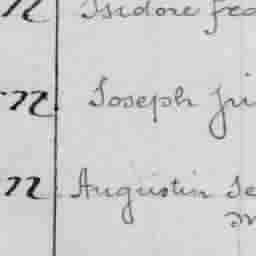 n Isidore fra
n Joseph fri
n Augustin Se